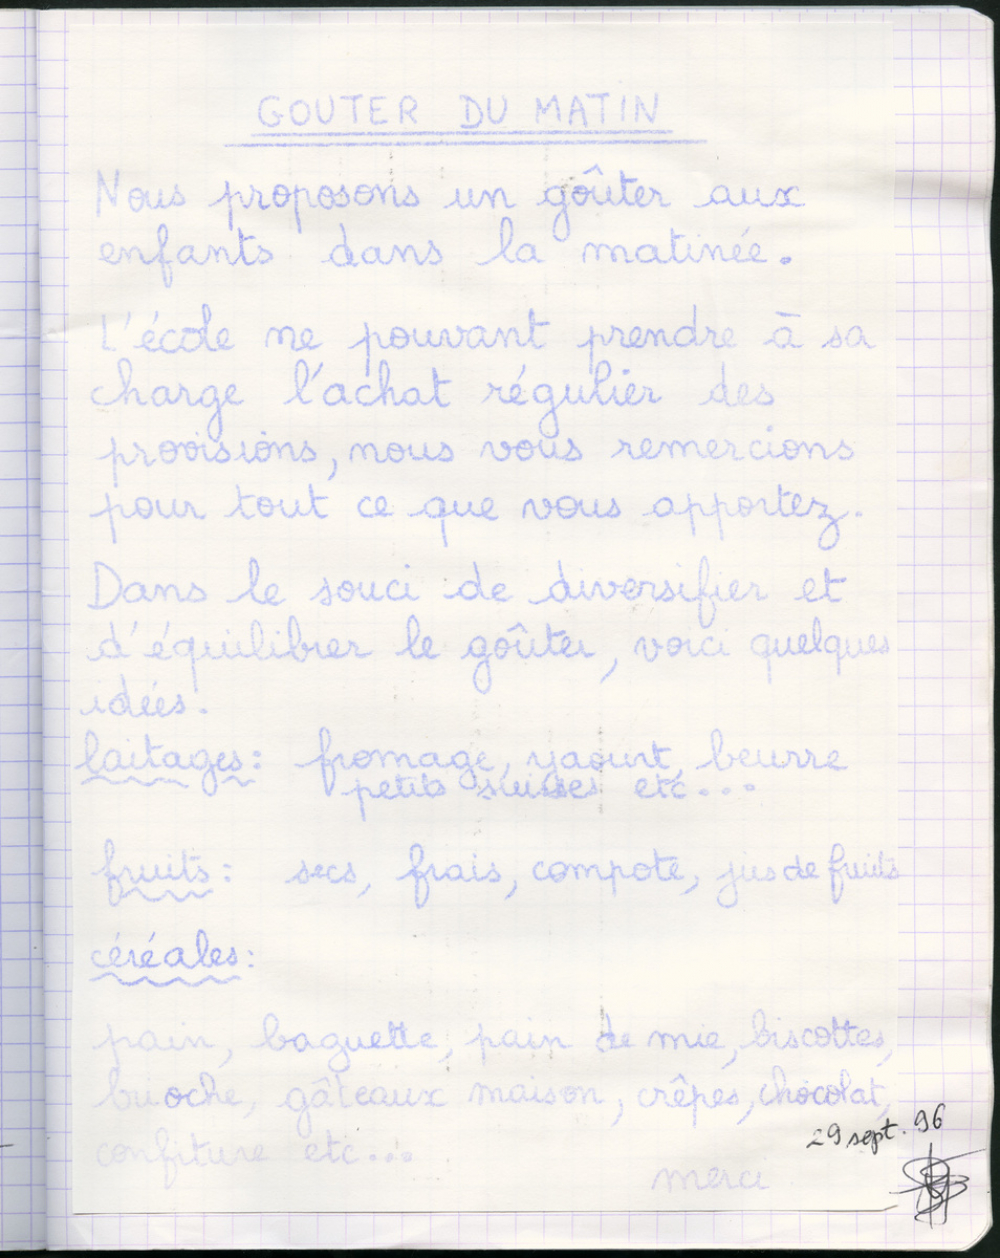 GOUTER DU MATIN
Nous proposons un goûter aux
enfants dans la matinée.
L'école ne pouvant prendre à sa
charge l'achat régulier des
provisions, nous vous remercions
pour tout ce que vous apportez.
Dans le souci de diversifier et
d'équilibrer le goûter, voici quelques
idées.
laitages: fromage, yaourt, beurre
petits suisses etc...
fruits: secs, frais, compote, jus de fruits
céréales:
pain, baguette, pain de mie, biscottes,
brioche, gâteaux maison, crêpes, chocolat,
confiture etc...
29 sept. 96
merci